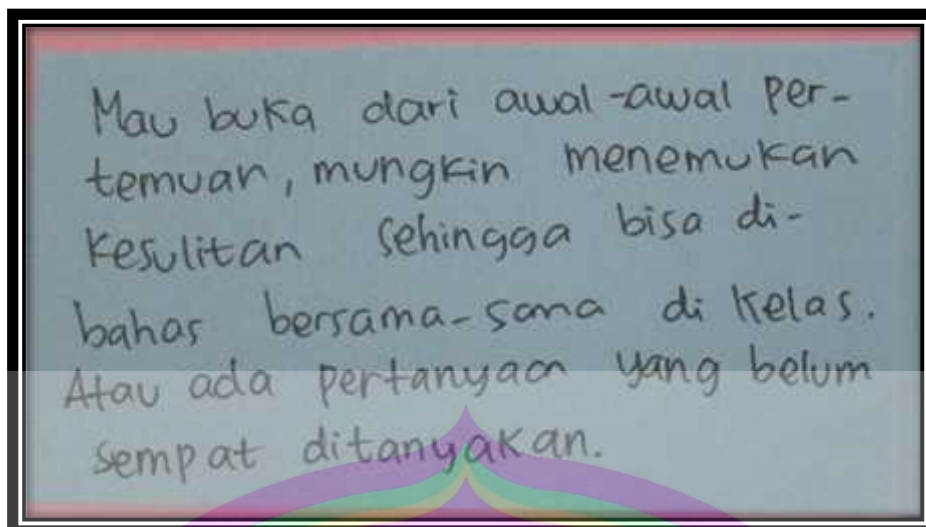 Mau buka dari awal-awal per-
temuan, mungkin menemukan
kesulitan sehingga bisa di-
bahas bersama-sama di kelas.
Atau ada pertanyaan yang belum
sempat ditanyakan.